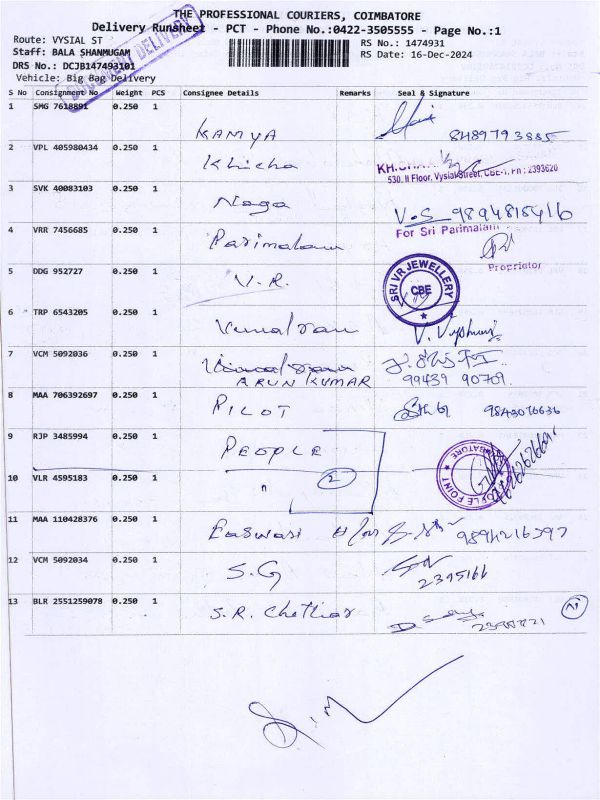 THE PROFESSIONAL COURIERS, COIMBATORE
Delivery Runsheet - PCT - Phone No.:0422-3505555 - Page No.:1
Route: VYSIAL ST
RS No.: 1474931
Staff: BALA SHANMUGAM
RS Date: 16-Dec-2024
DRS No.: DCJB147493101
Vehicle: Big Bag Delivery
DOCUMENT DELIVERY
S No Consignment No Weight PCS Consignee Details Remarks Seal & Signature
1 SMG 7618891 0.250 1
KAMYA 8489793885
2 VPL 405980434 0.250 1
Khicha
530, II Floor, Vysial Street, CBE-1, Ph : 2393620
3 SVK 40083103 0.250 1
Naga V.S 9894815416
4 VRR 7456685 0.250 1 For Sri Parimalam
Parimalam
Proprietor
5 DDG 952727 0.250 1
V.R. SRI VR JEWELLERY CBE
6 TRP 6543205 0.250 1
7 VCM 5092036 0.250 1
ARUN KUMAR 99439 90709.
8 MAA 706392697 0.250 1
PILOT 9843076636
9 RJP 3485994 0.250 1
PEOPLE
10 VLR 4595183 0.250 1
" 2 PEOPLE POINT COIMBATORE
11 MAA 110428376 0.250 1
Easwari 9894216397
12 VCM 5092034 0.250 1
S.G 2395166
13 BLR 2551259078 0.250 1
S.R. Chettiar